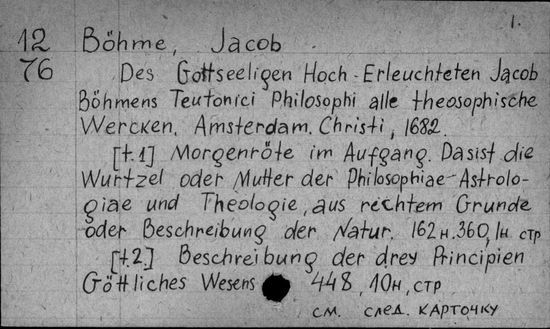 1.
12 Böhme, Jacob
76 Des Gottseeligen Hoch-Erleuchteten Jacob
Böhmens Teutonici Philosophi alle theosophische
Wercken. Amsterdam. Christi, 1682.
[t.1] Morgenröte im Aufgang. Das ist die
Wurtzel oder Mutter der Philosophiae Astrolo-
giae und Theologie, aus rechtem Grunde
oder Beschreibung der Natur. 162 н. 360, 1н. стр
[t.2.] Beschreibung der drey Principien
Göttliches Wesens 448, 10н, стр
см. след. карточку